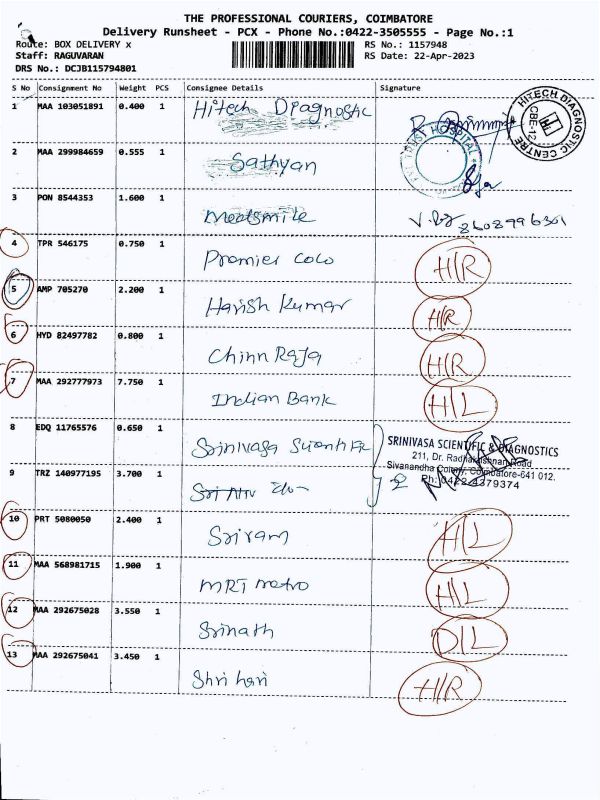 THE PROFESSIONAL COURIERS, COIMBATORE
Delivery Runsheet - PCX - Phone No.:0422-3505555 - Page No.:1
Route: BOX DELIVERY x RS No.: 1157948
Staff: RAGUVARAN RS Date: 22-Apr-2023
DRS No.: DCJB115794801
S No Consignment No Weight PCS Consignee Details Signature
1 MAA 103051891 0.400 1 Hitech Diagnostic
HITECH DIAGNOSTIC CENTRE CBE-12
HOSPITAL
2 MAA 299984659 0.555 1 Sathyan
3 PON 8544353 1.600 1 Medsmile
4 TPR 546175 0.750 1 Premier colo H/R
5 AMP 705270 2.200 1 Harish Kumar H/R
6 HYD 82497782 0.800 1 Chinn Raja H/R
7 MAA 292777973 7.750 1 Indian Bank H/L
8 EDQ 11765576 0.650 1 Srinivasa
SRINIVASA SCIENTIFIC & DIAGNOSTICS
211, Dr. Radhakrishnan Road
Sivanandha Colony, Coimbatore-641 012.
Ph: 0422-4379374
9 TRZ 140977195 3.700 1
10 PRT 5080050 2.400 1 Sriram H/L
11 MAA 568981715 1.900 1 MRT metro H/L
12 MAA 292675028 3.550 1 Srinath D/L
13 MAA 292675041 3.450 1 Shri hari H/R